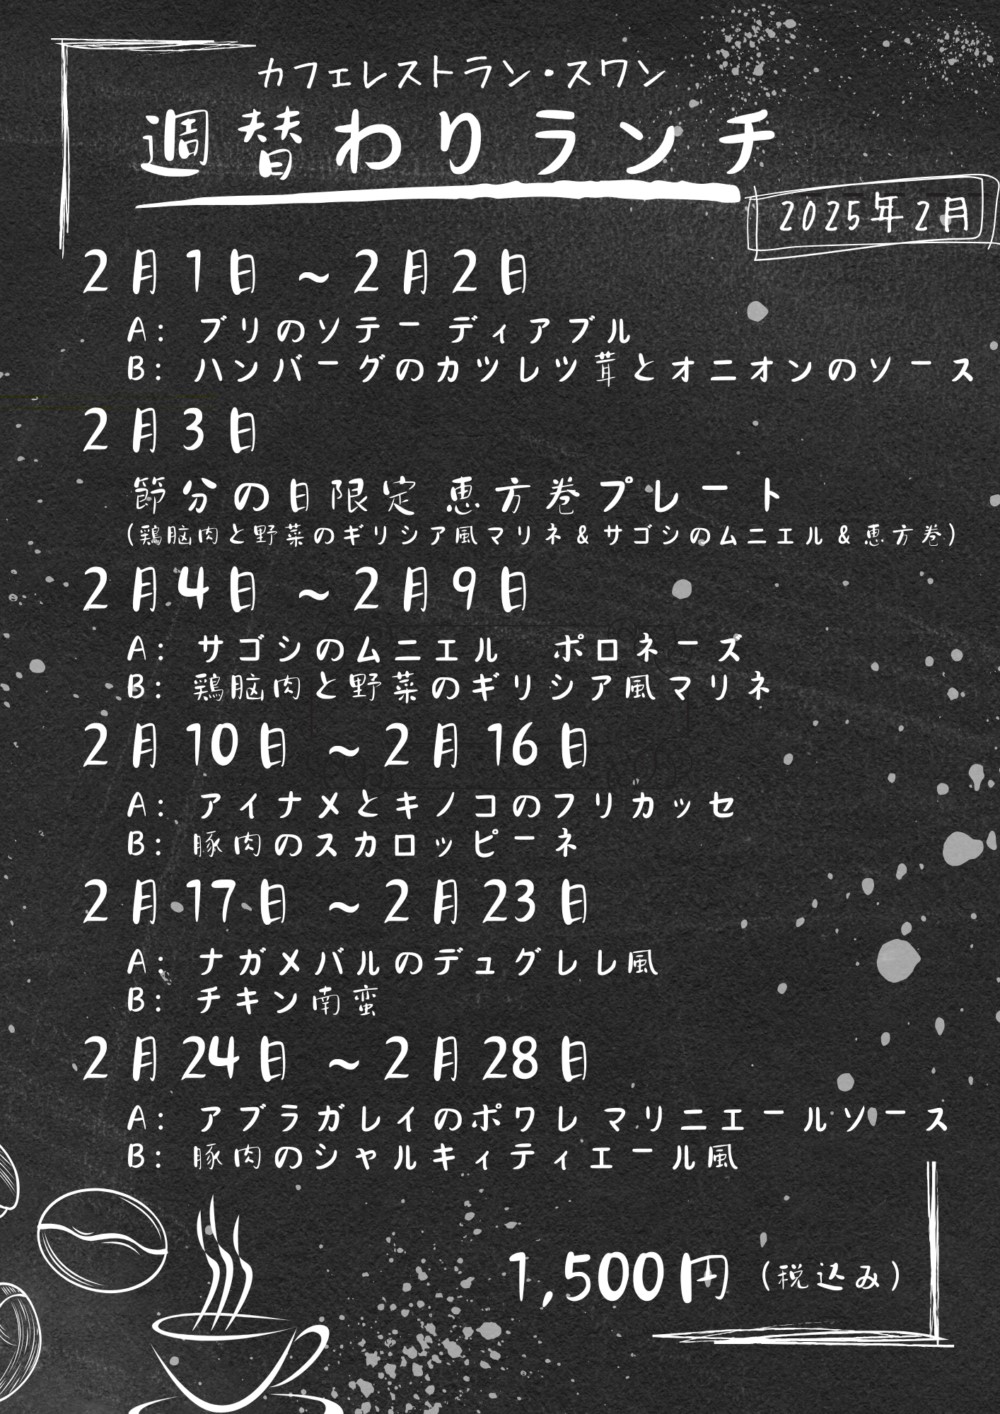 カフェレストラン・スワン
週替わりランチ
2025年2月
2月1日 ~2月2日
A: ブリのソテー ディアブル
B: ハンバーグのカツレツ茸とオニオンのソース
2月3日
節分の日限定 恵方巻プレート
(鶏脳肉と野菜のギリシア風マリネ&サゴシのムニエル&恵方巻)
2月4日 ~2月9日
A: サゴシのムニエル　ポロネーズ
B: 鶏脳肉と野菜のギリシア風マリネ
2月10日 ~2月16日
A: アイナメとキノコのフリカッセ
B: 豚肉のスカロッピーネ
2月17日 ~2月23日
A: ナガメバルのデュグレレ風
B: チキン南蛮
2月24日 ~2月28日
A: アブラガレイのポワレ マリニエールソース
B: 豚肉のシャルキィティエール風
1,500円 (税込み)